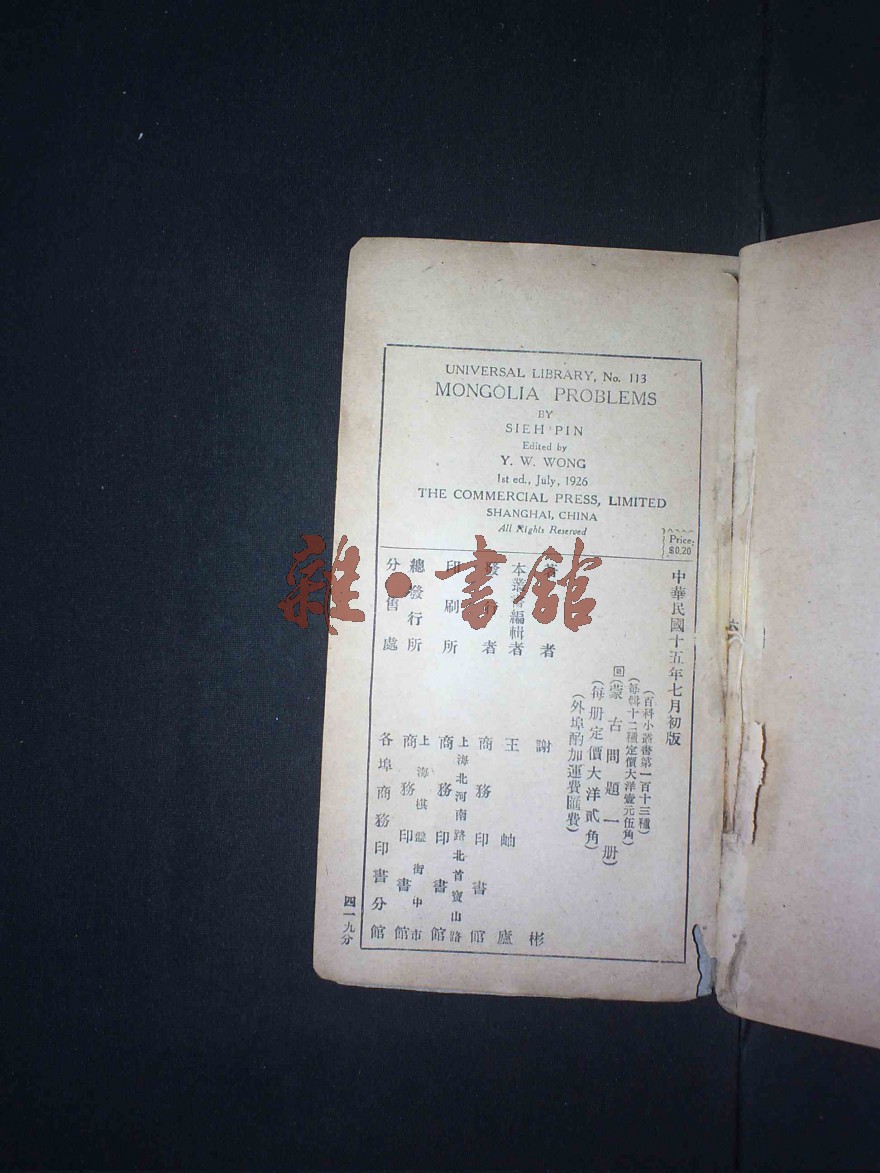 UNIVERSAL LIBRARY, No. 113
MONGOLIA PROBLEMS
BY
SIEH PIN
Edited by
Y. W. WONG
1st ed., July, 1926
THE COMMERCIAL PRESS, LIMITED
SHANGHAI, CHINA
All Rights Reserved
Price
$0.20
中華民國十五年七月初版
(百科小叢書第一百十三種)
(每輯十二種定價大洋壹元伍角)
(蒙古問題一册)
(每册定價大洋貳角)
(外埠酌加運費匯費)
著者 謝彬
本叢書編輯者 王岫廬
發行者 商務印書館
印刷所 上海北河南路北首寶山路 商務印書館
總發行所 上海棋盤街中市 商務印書館
分售處 各埠商務印書分館
四一九分
雜·書館